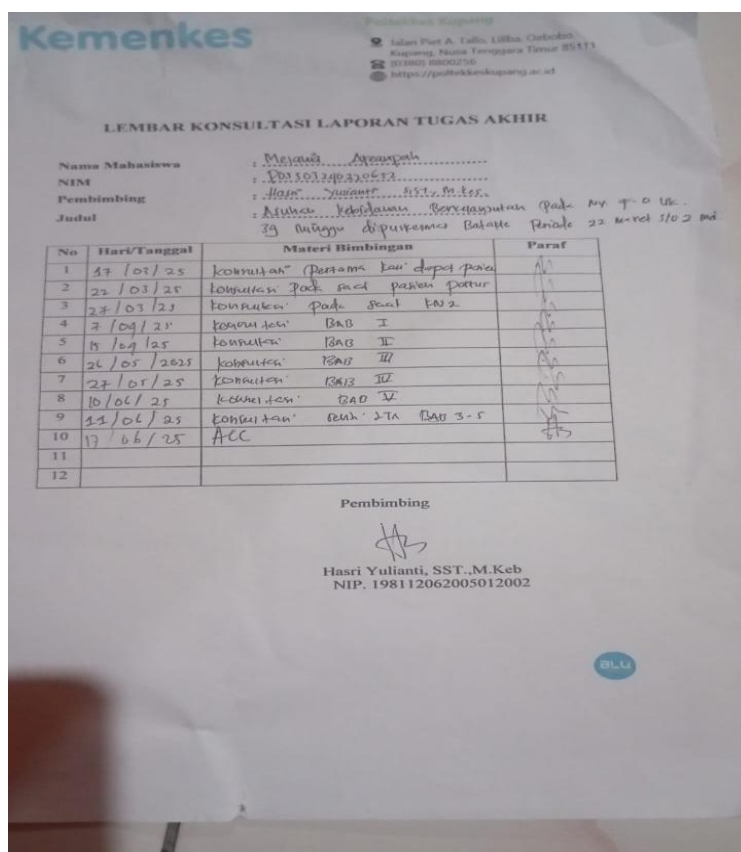 Kemenkes
Poltekkes Kupang
Jalan Piet A. Tallo, Liliba, Oebobo,
Kupang, Nusa Tenggara Timur 85111
(0380) 8800256
https://poltekkeskupang.ac.id
LEMBAR KONSULTASI LAPORAN TUGAS AKHIR
Nama Mahasiswa :
NIM :
Pembimbing : Hasri Yulianti SST., M.Keb.
Judul : Asuhan Kebidanan Berkelanjutan Pada Ny
39 Minggu dipuskesmas Periode 22 Maret s/d 2
No Hari/Tanggal Materi Bimbingan Paraf
1 17 /03/ 25 Konsultasi pertama kali dapat pasien
2 22 / 03 / 25 konsultasi pada saat pasien
3 27/03/25 Konsultasi pada saat KN2
4 konsultasi BAB I
5 konsultasi BAB II
6 26 / 05 / 2025 konsultasi BAB III
7 27/05/25 konsultasi BAB IV
8 10/06/ 25 konsultasi BAB V
9 11/06/ 25 konsultasi LTA BAB 3-5
10 17 06/ 25 ACC
11
12
Pembimbing
Hasri Yulianti, SST.,M.Keb
NIP. 198112062005012002
BLU